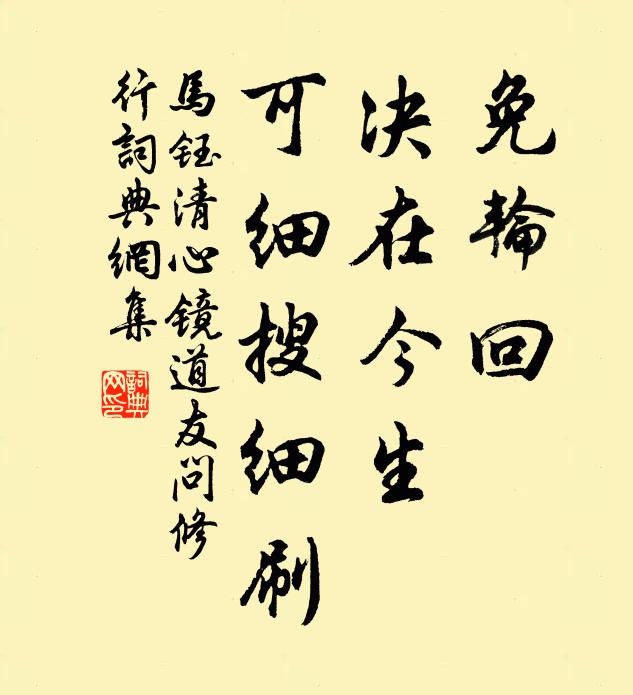 免輪回
决在今生
可細搜細刷
馬鈺清心镜道友問修
行詞典網集
詞典网印